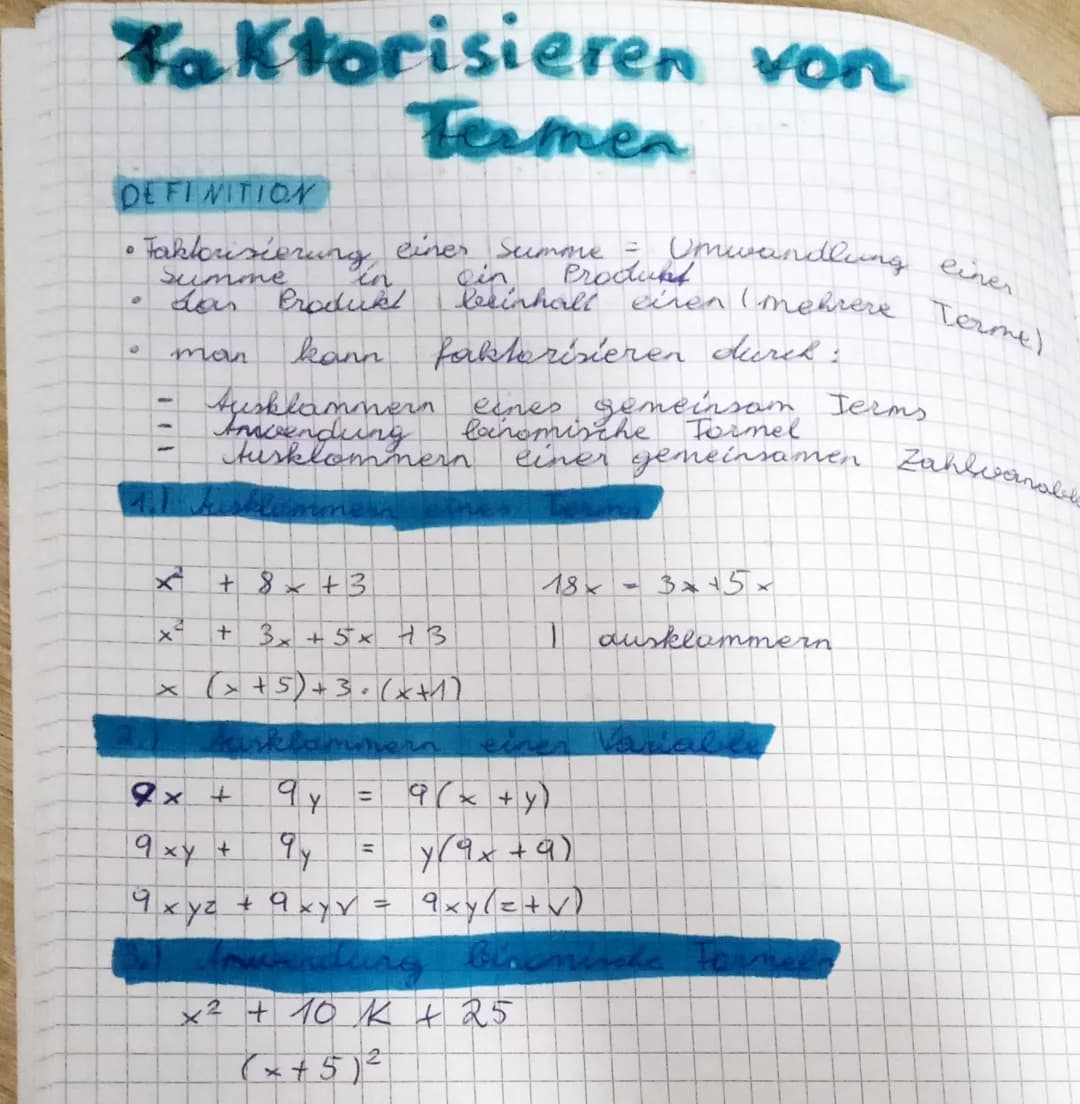 Faktorisieren von
Termen
DEFINITION
• Faktorisierung einer Summe = Umwandlung einer
Summe in ein Produkt
• das Produkt beinhalt einen (mehrere Terme)
• man kann faktorisieren durch:
- Ausklammern eines gemeinsam Terms
- Anwendung binomische Formel
- Ausklammern einer gemeinsamen
1.) Ausklammern eines Terms
x² + 8x + 3 18x - 3x + 5x
x² + 3x + 5x + 3 | ausklammern
x (x + 5) + 3 · (x + 1)
2.) Ausklammern einer Variable
9x + 9y = 9(x + y)
9xy + 9y = y(9x + 9)
9xyz + 9xyv = 9xy(z + v)
3.) Anwendung Binomische Formeln
x² + 10 K + 25
(x + 5)²